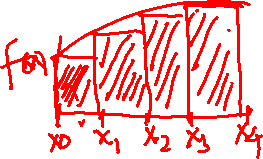 f(x)
x0 x1 x2 x3 x4